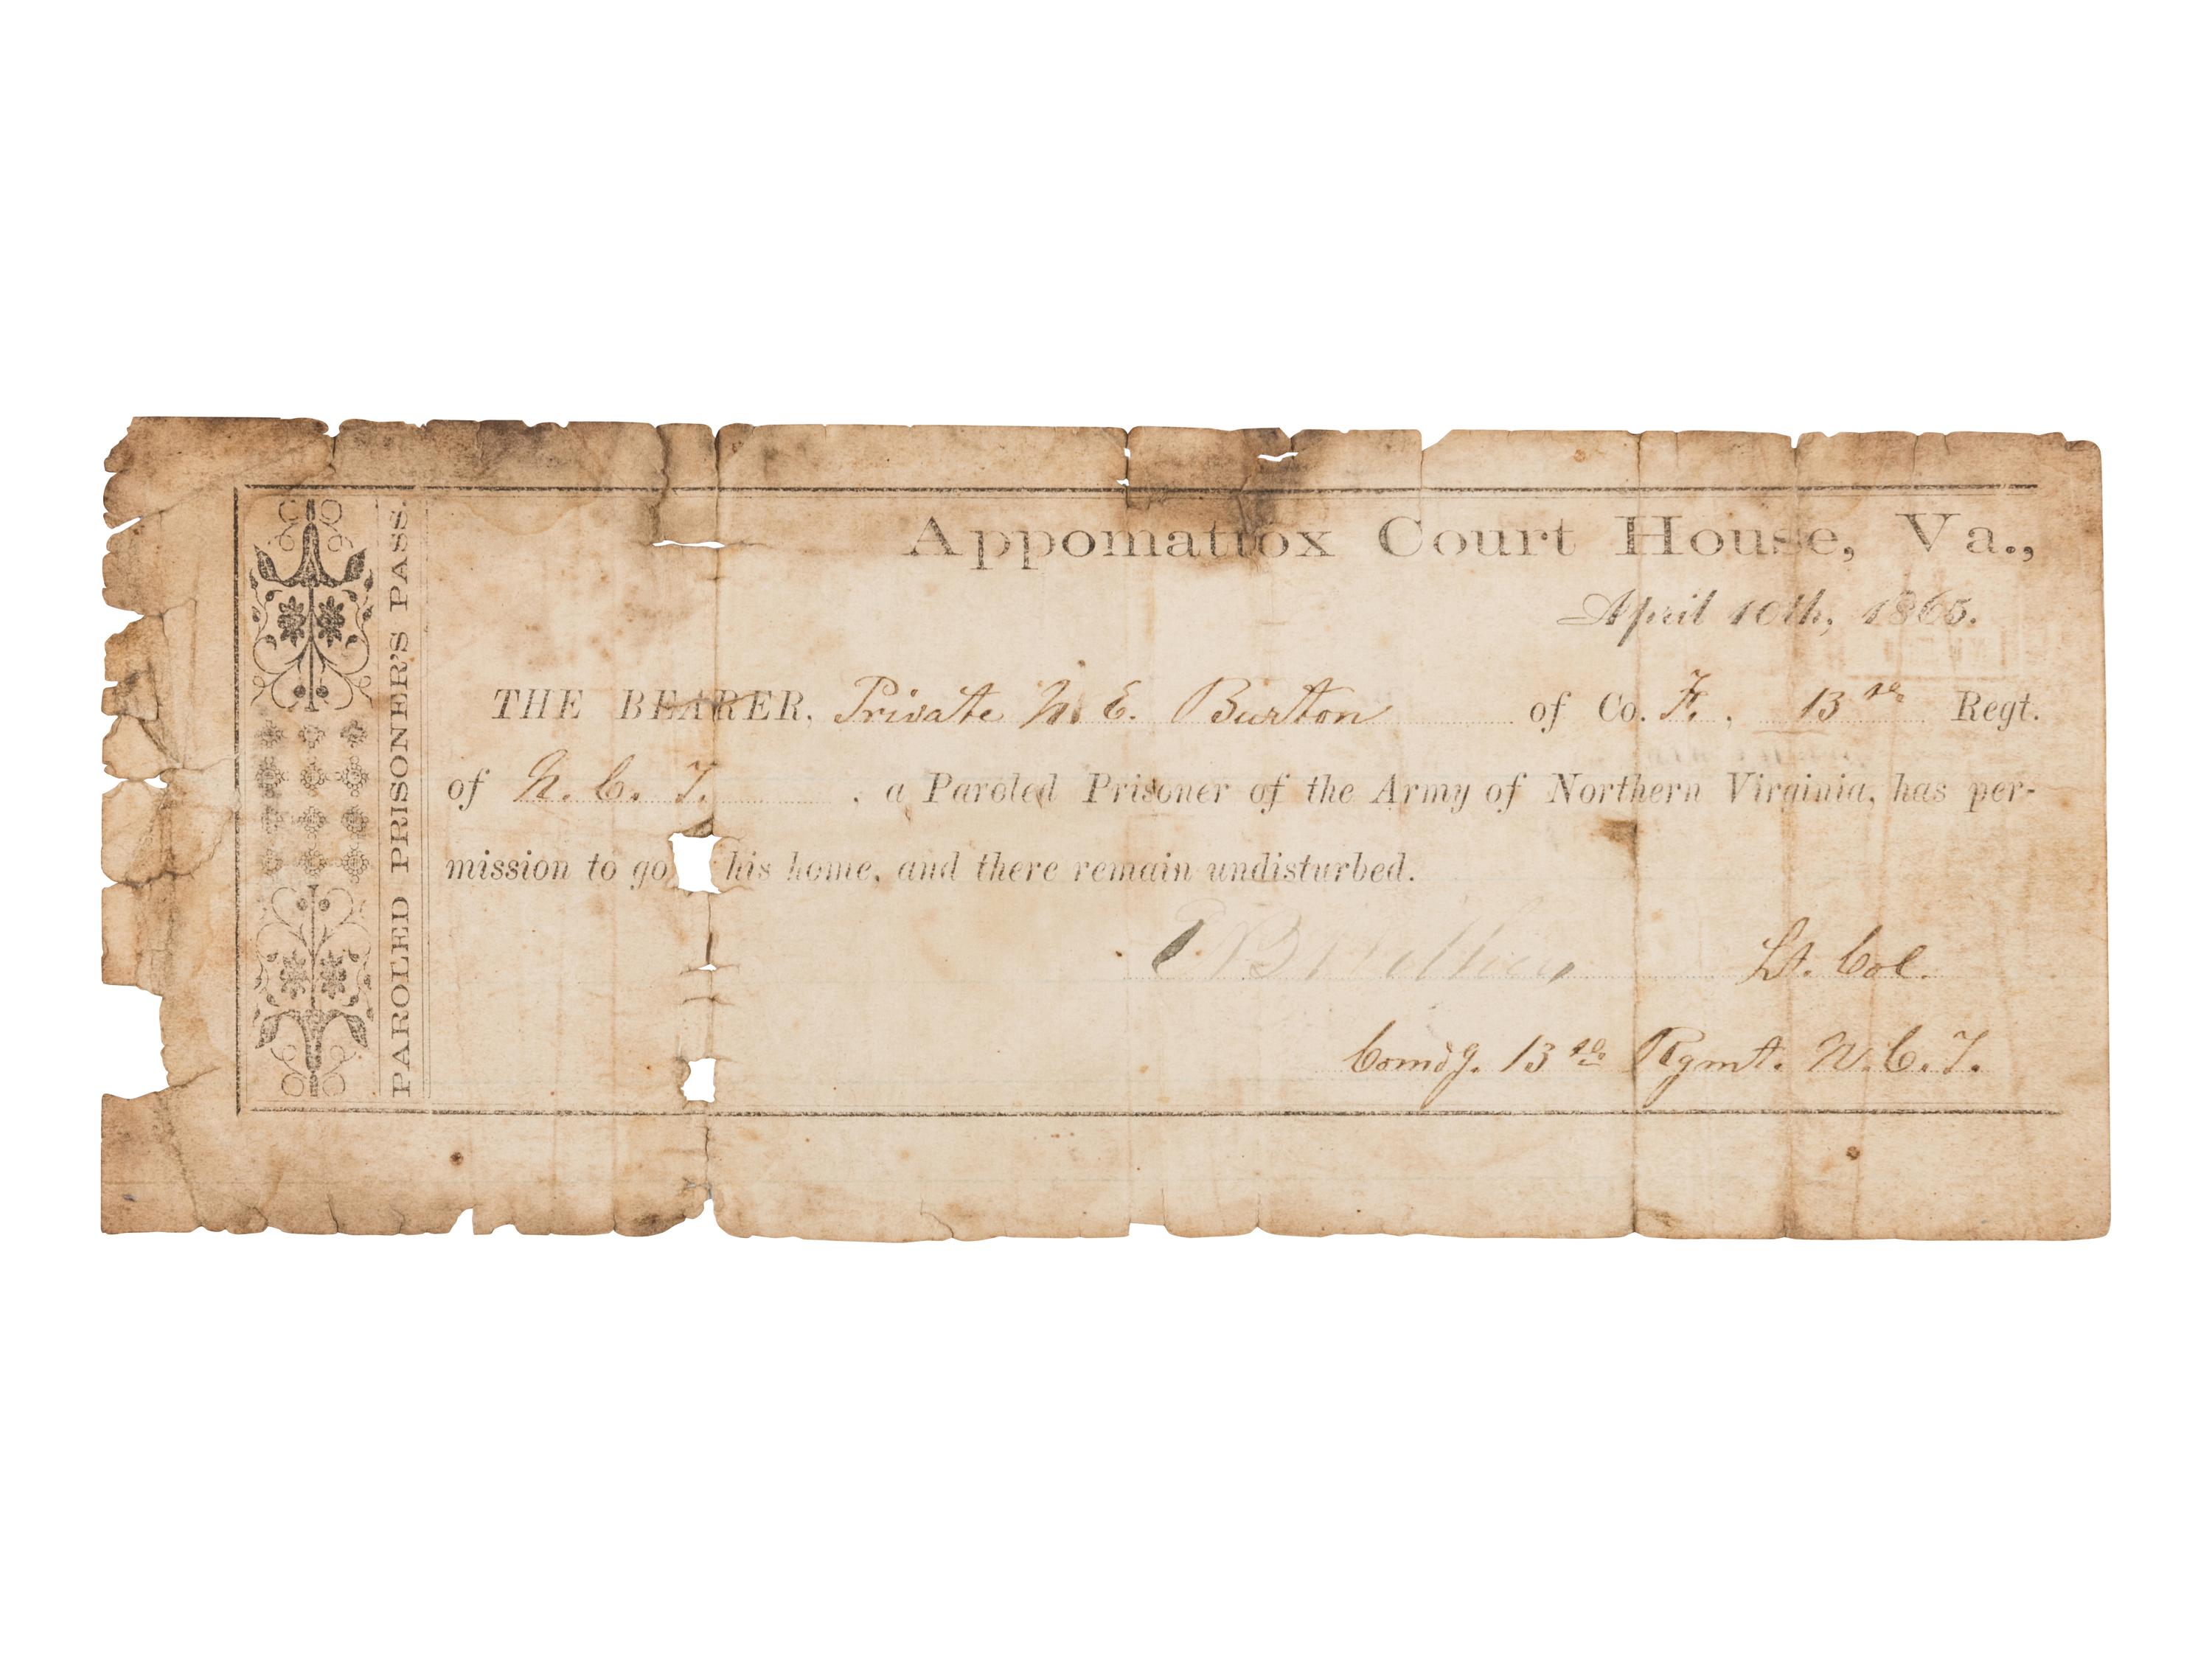 PAROLED PRISONER'S PASS.
Appomattox Court House, Va.,
April 10th, 1865.
THE BEARER, Private N. E. Burton of Co. F., 13th Regt.
of N. C. T. , a Paroled Prisoner of the Army of Northern Virginia, has per-
mission to go his home, and there remain undisturbed.
Lt. Col.
Comdg. 13th Rgmt. N. C. T.